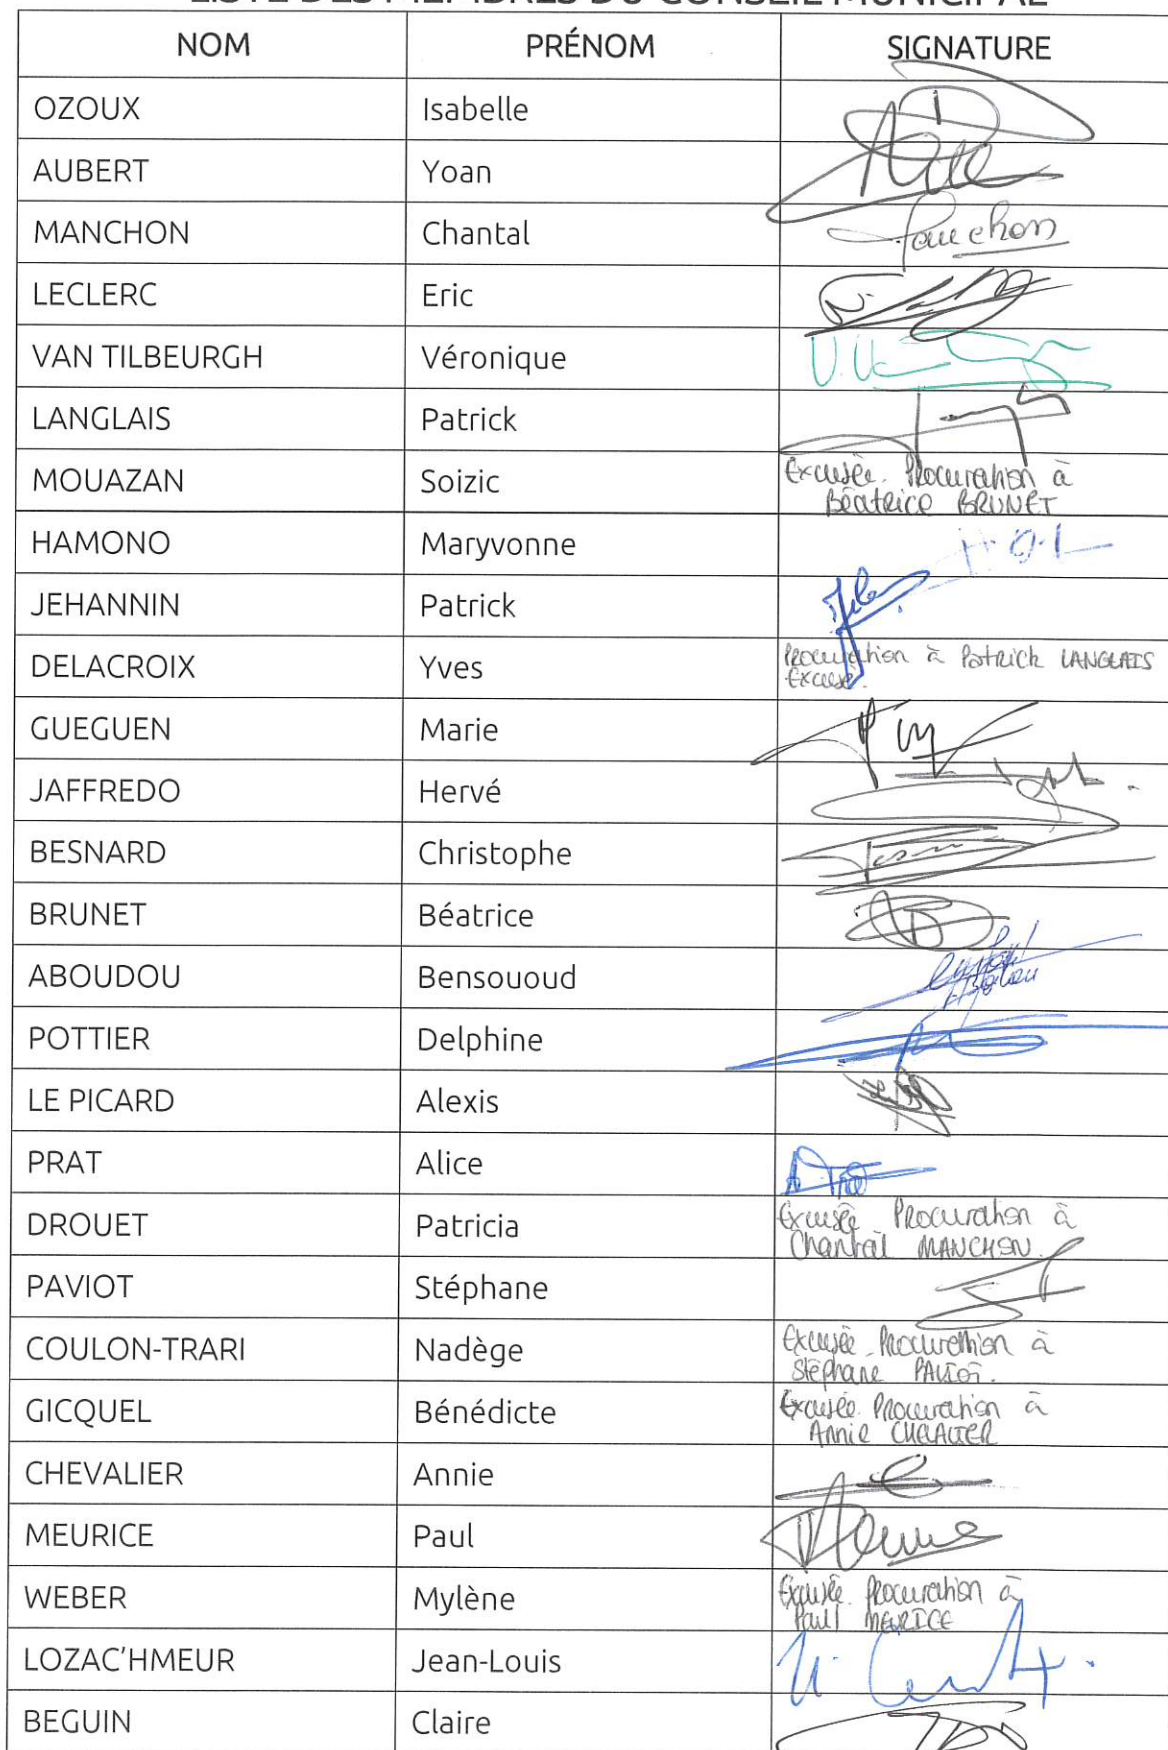 LISTE DES MEMBRES DU CONSEIL MUNICIPAL
NOM PRÉNOM SIGNATURE
OZOUX Isabelle
AUBERT Yoan
MANCHON Chantal Manchon
LECLERC Eric
VAN TILBEURGH Véronique
LANGLAIS Patrick
MOUAZAN Soizic Excusée. Procuration à
Béatrice BRUNET
HAMONO Maryvonne
JEHANNIN Patrick
DELACROIX Yves Procuration à Patrick LANGLAIS
Excusé.
GUEGUEN Marie
JAFFREDO Hervé
BESNARD Christophe
BRUNET Béatrice
ABOUDOU Bensououd
POTTIER Delphine
LE PICARD Alexis
PRAT Alice
DROUET Patricia Excusée Procuration à
Chantal MANCHON.
PAVIOT Stéphane
COULON-TRARI Nadège Excusée. Procuration à
Stéphane PAVIOT.
GICQUEL Bénédicte Excusée. Procuration à
Annie CHEVALIER
CHEVALIER Annie
MEURICE Paul
WEBER Mylène Excusée. Procuration à
Paul MEURICE
LOZAC'HMEUR Jean-Louis
BEGUIN Claire